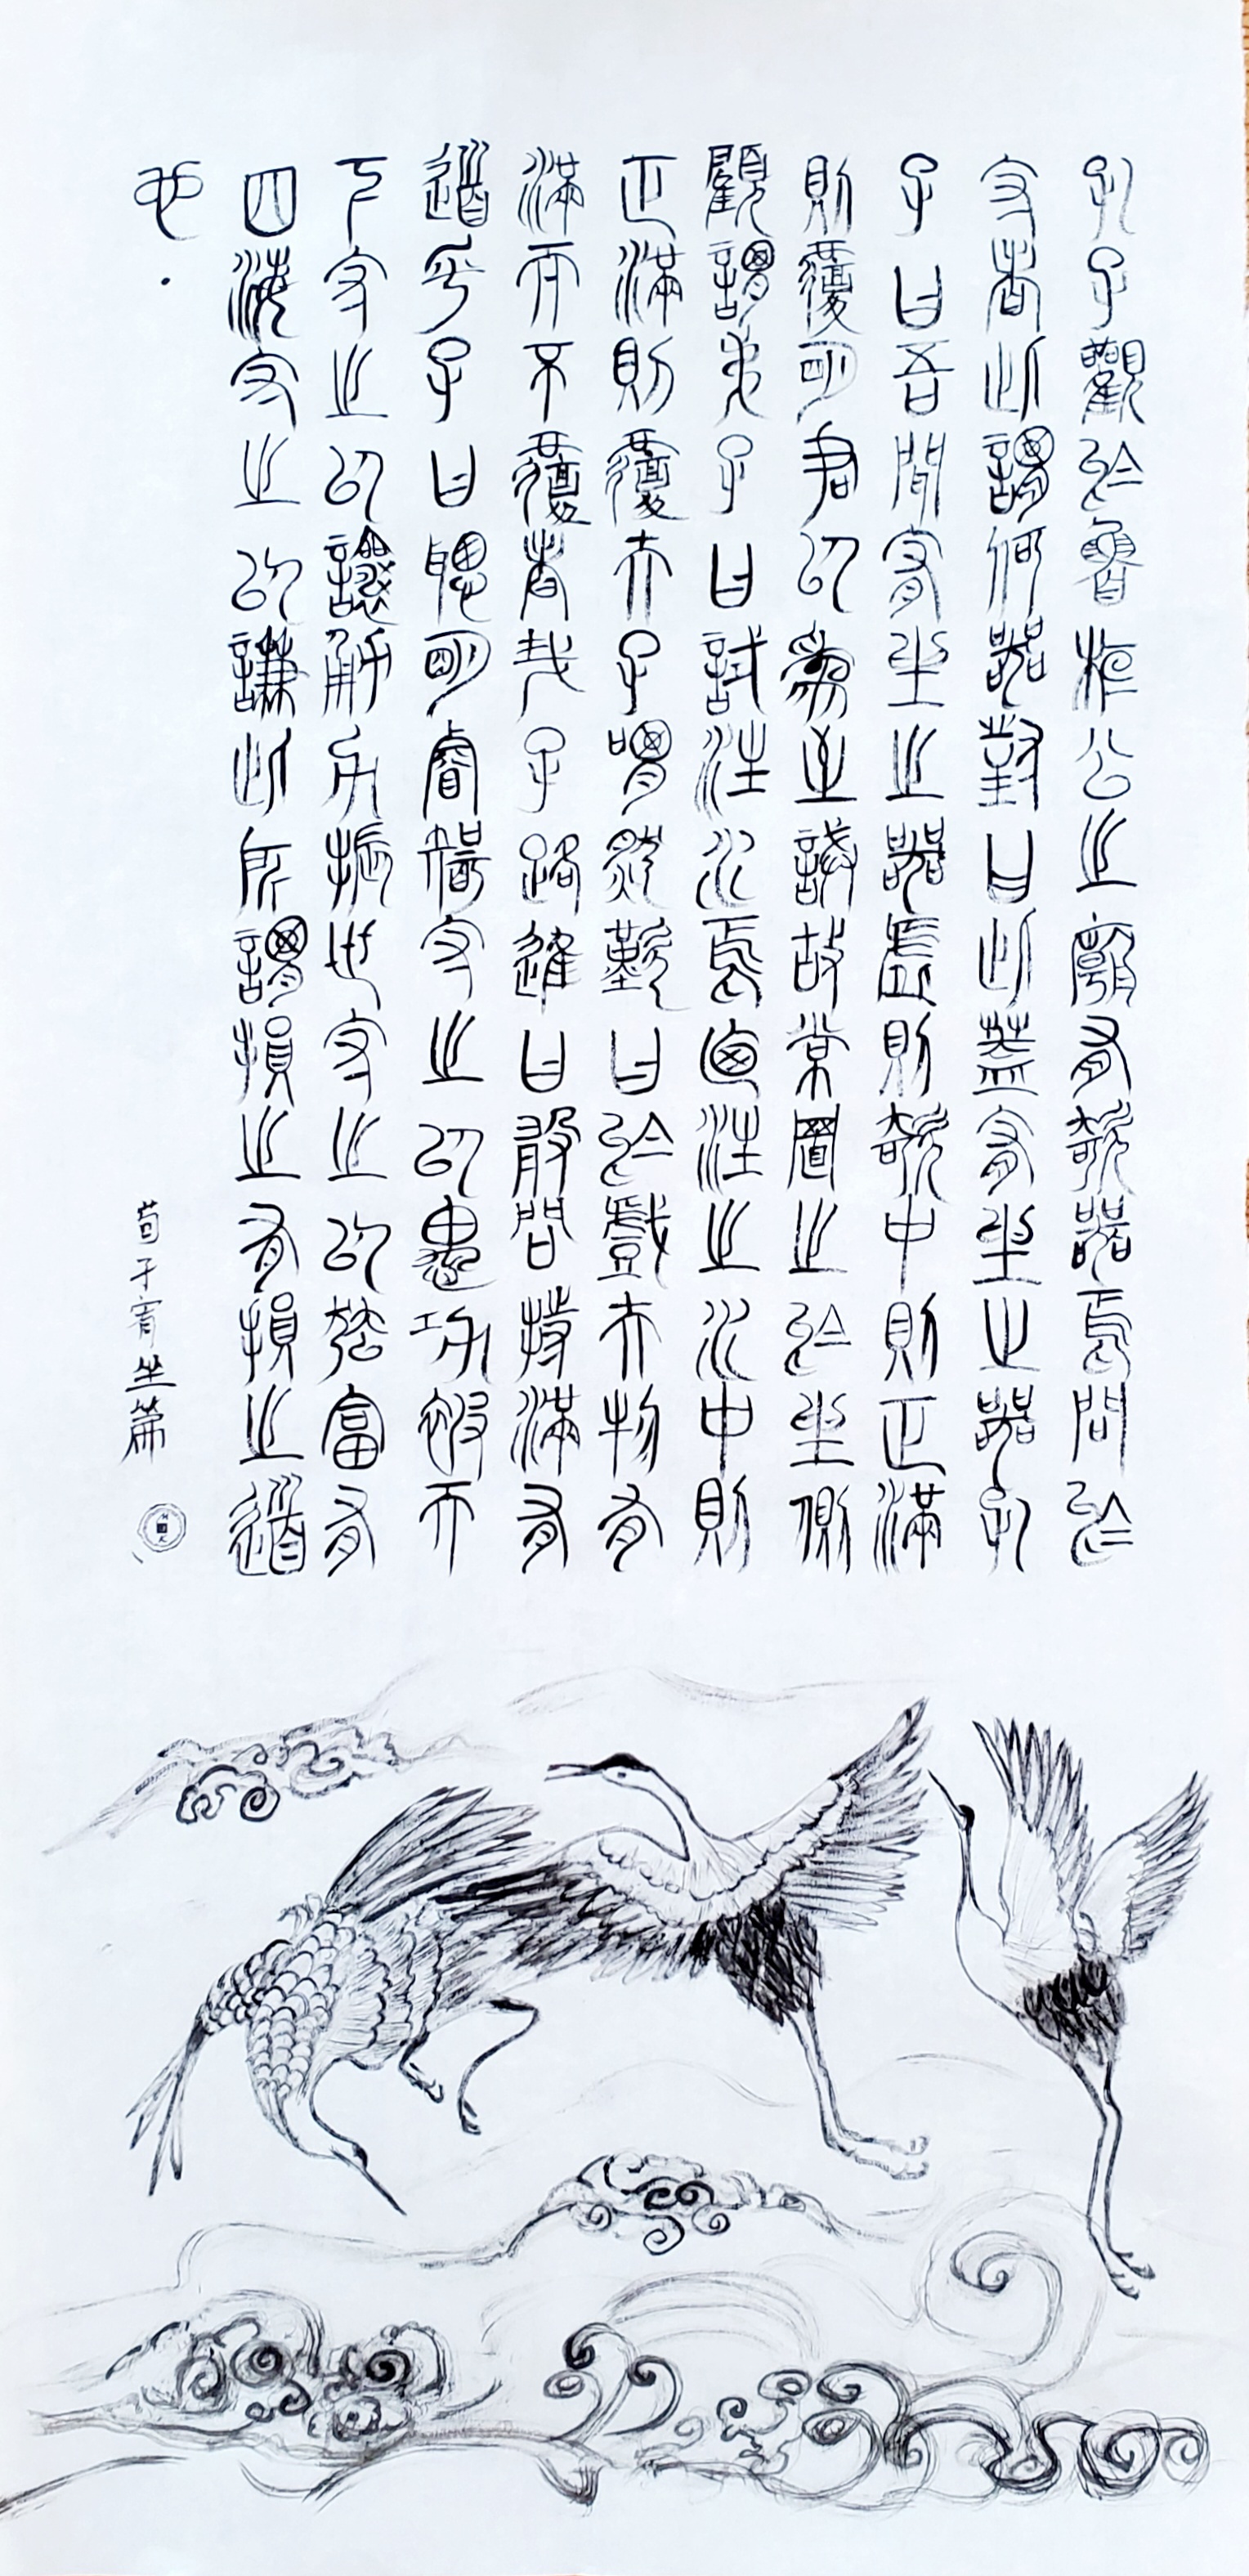 孔子觀於魯桓公之廟有欹器焉問於
守者此謂何器對曰此蓋宥坐之器孔
子曰吾聞宥坐之器虛則欹中則正滿
則覆明君以為至誡故常置之於坐側
顧謂弟子曰試注水焉迺注之水中則
正滿則覆夫子喟然歎曰於戲夫物有
滿而不覆者哉子路進曰敢問持滿有
道乎子曰聰明睿智守之以愚功被天
下守之以讓勇力振世守之以怯富有
四海守之以謙此所謂損之有損之道
也.
荀子宥坐篇